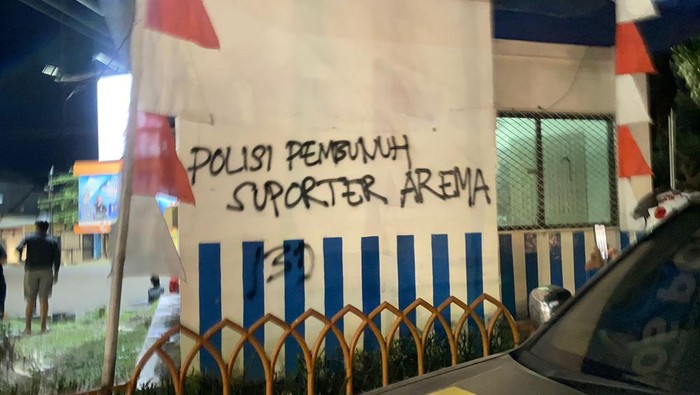 POLISI PEMBUNUH
SUPORTER AREMA
(31)